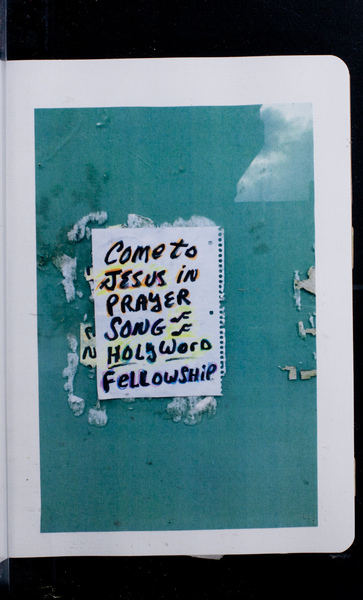 COME to
JESUS in
PRAYER
SONG
HOLYWORD
FELLOWSHIP